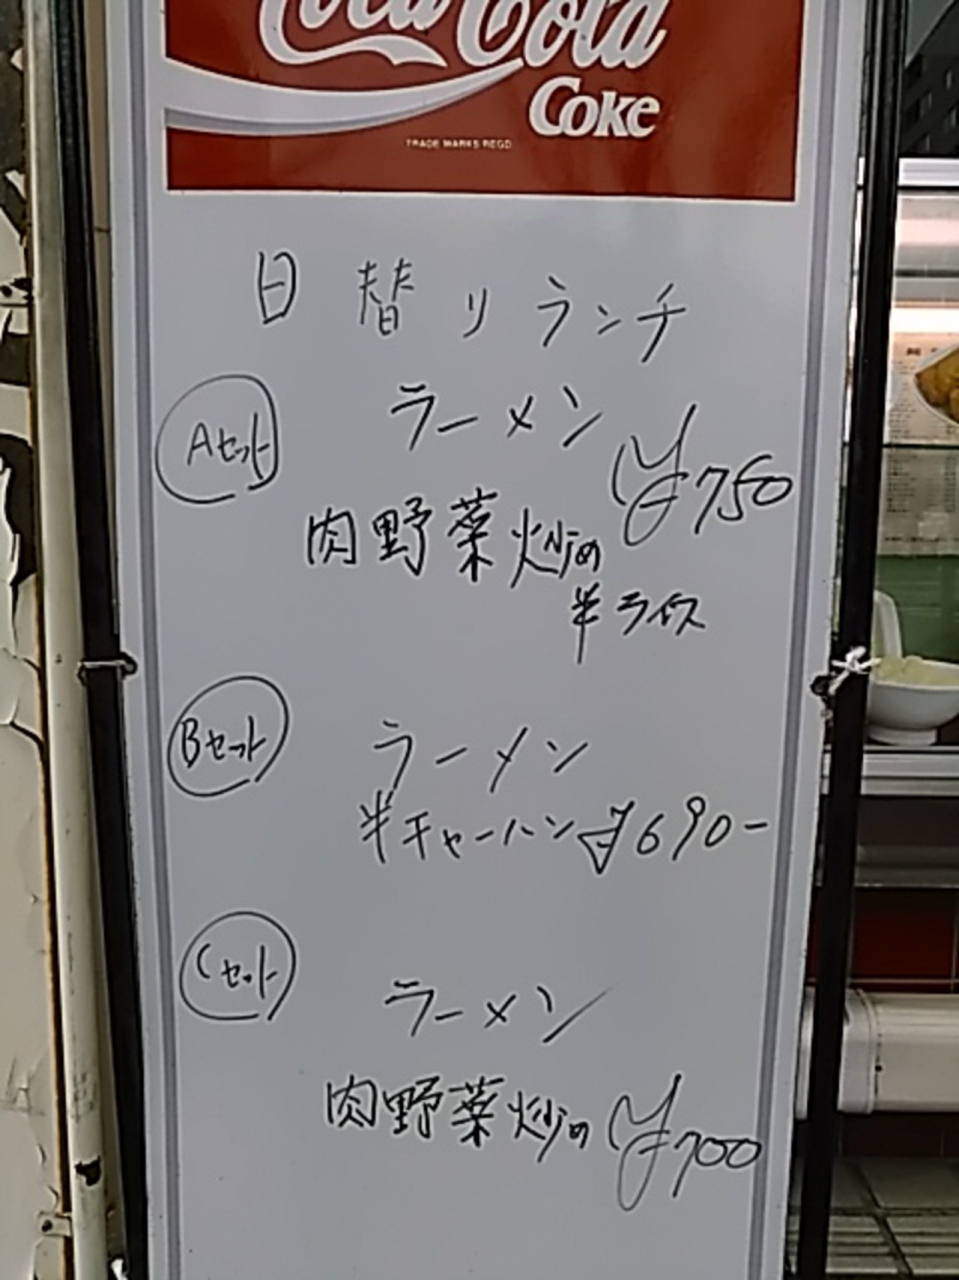 Coca-Cola
Coke
TRADE MARKS REGD
日替りランチ
Aセット
ラーメン
肉野菜炒め
¥750
半ライス
Bセット
ラーメン
半チャーハン ¥690-
Cセット
ラーメン
肉野菜炒め ¥700